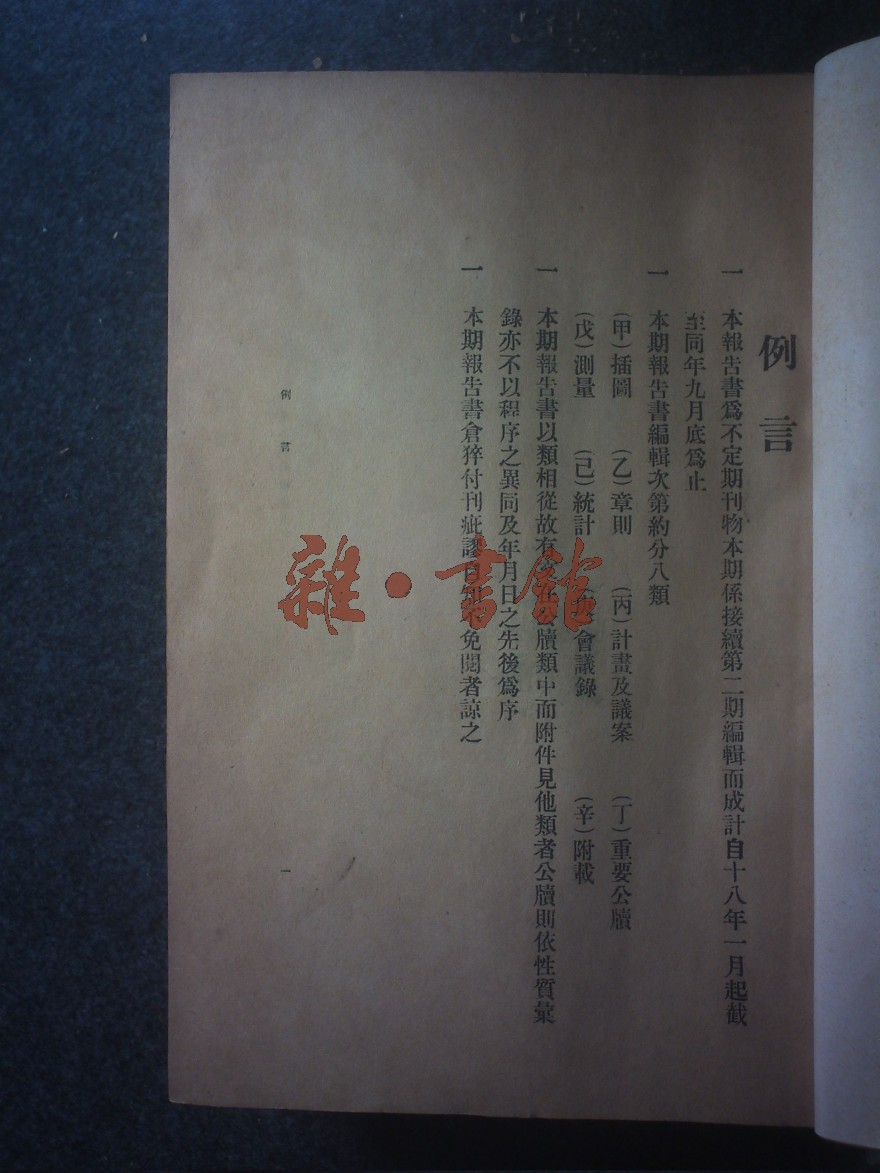 例言
一 本報告書爲不定期刊物本期係接續第二期編輯而成計自十八年一月起截
至同年九月底爲止
一 本期報告書編輯次第約分八類
(甲)插圖 (乙)章則 (丙)計畫及議案 (丁)重要公牘
(戊)測量 (己)統計 會議錄 (辛)附載
一 本期報告書以類相從故有 牘類中而附件見他類者公牘則依性質彙
錄亦不以程序之異同及年月日之先後爲序
一 本期報告書倉猝付刊疵謬 免閱者諒之
例言
一
雜·書館